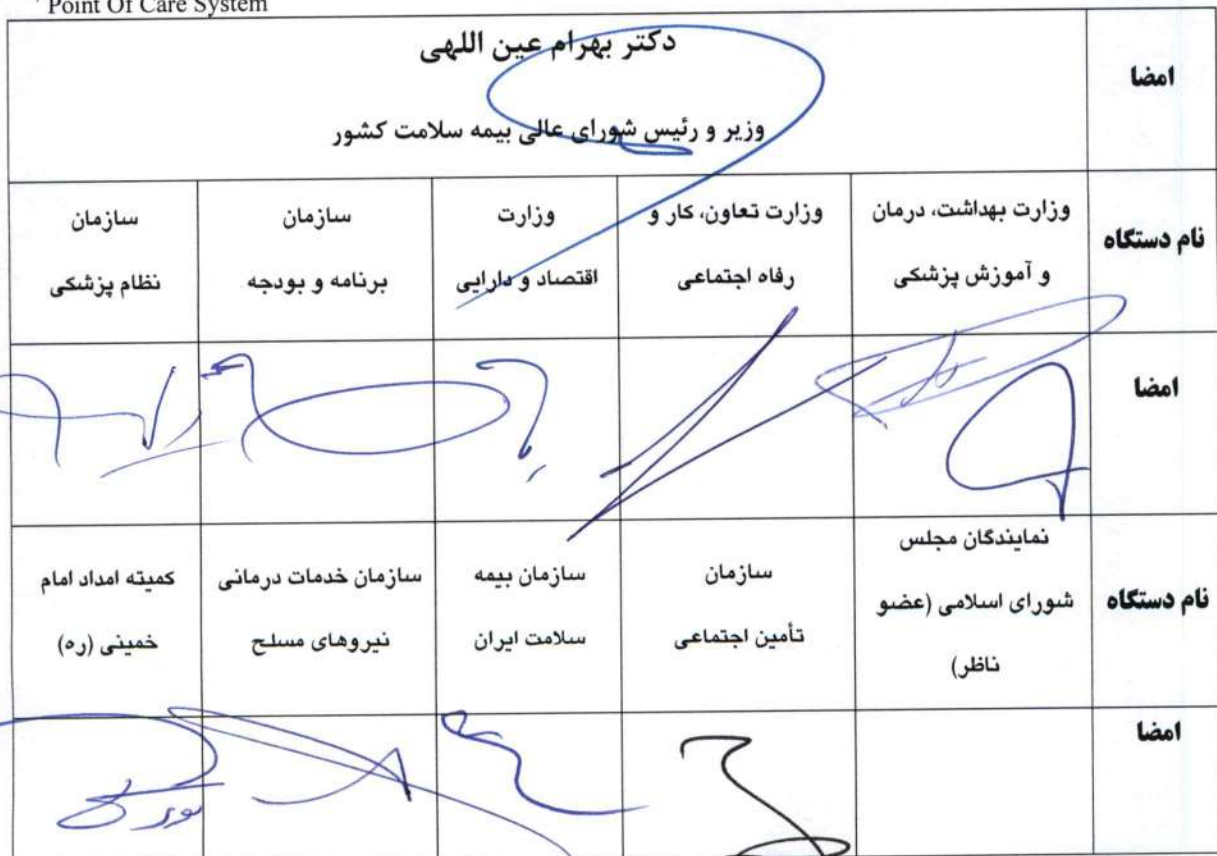 Point Of Care System
امضا
دکتر بهرام عین اللهی
وزیر و رئیس شورای عالی بیمه سلامت کشور
نام دستگاه
وزارت بهداشت، درمان
و آموزش پزشکی
وزارت تعاون، کار و
رفاه اجتماعی
وزارت
اقتصاد و دارایی
سازمان
برنامه و بودجه
سازمان
نظام پزشکی
امضا
نام دستگاه
نمایندگان مجلس
شورای اسلامی (عضو
ناظر)
سازمان
تأمین اجتماعی
سازمان بیمه
سلامت ایران
سازمان خدمات درمانی
نیروهای مسلح
کمیته امداد امام
خمینی (ره)
امضا